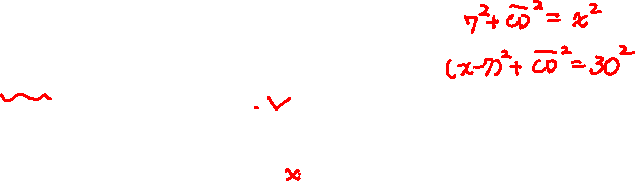 7² + C̅D̅² = x²
(x-7)² + C̅D̅² = 30²
x